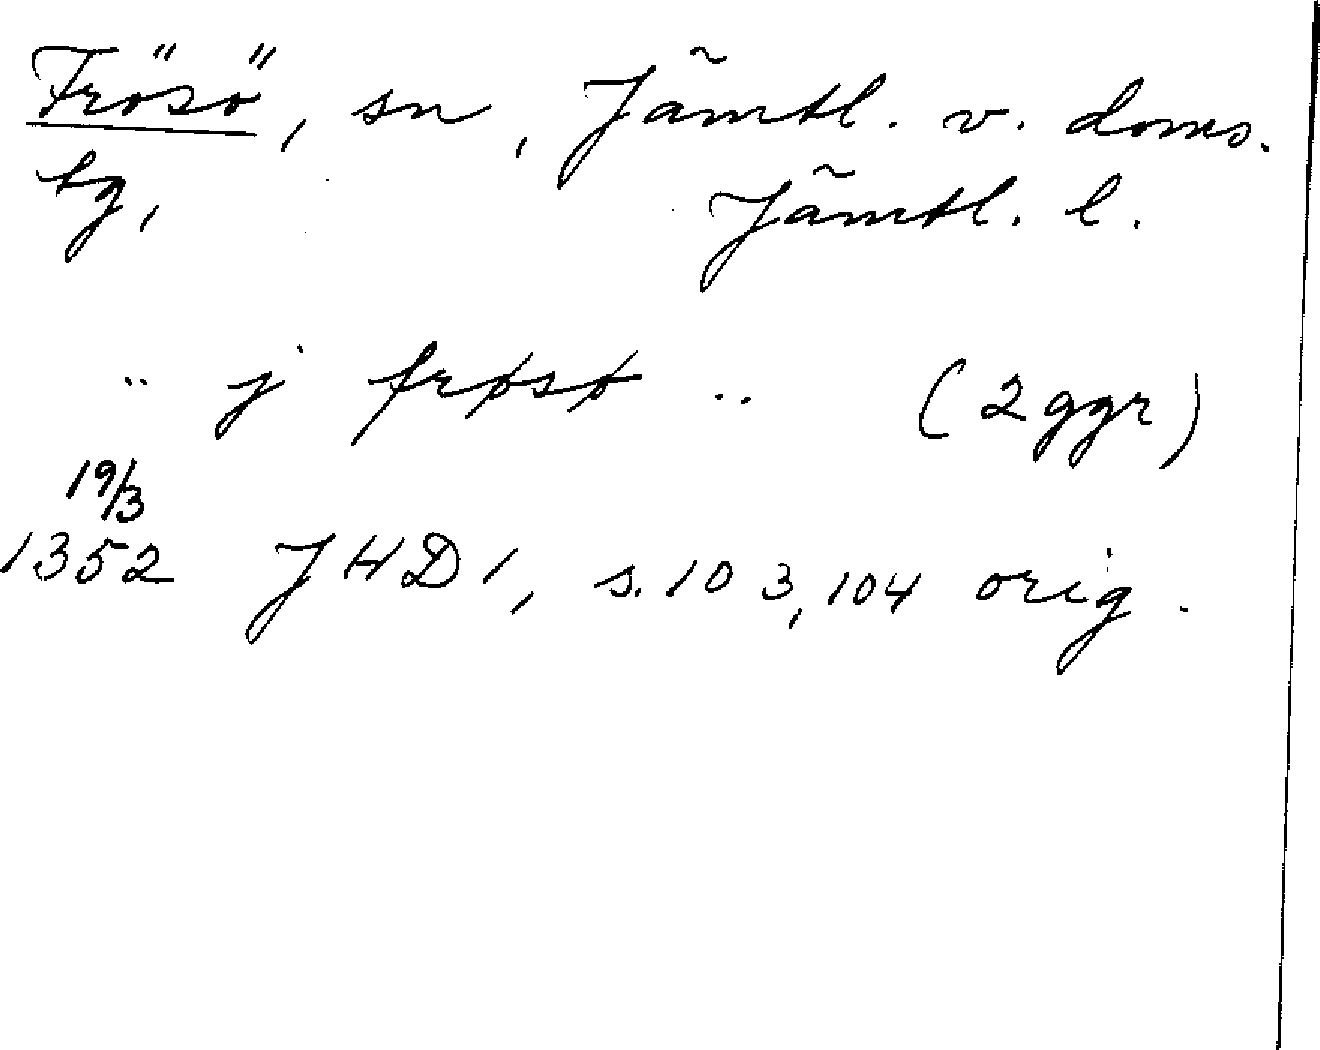 Frösö, sn, Jämtl. v. doms.
tg, Jämtl. l.
.. j frøsø .. (2ggr)
19/3
1352 JHD1, s.103,104 orig.